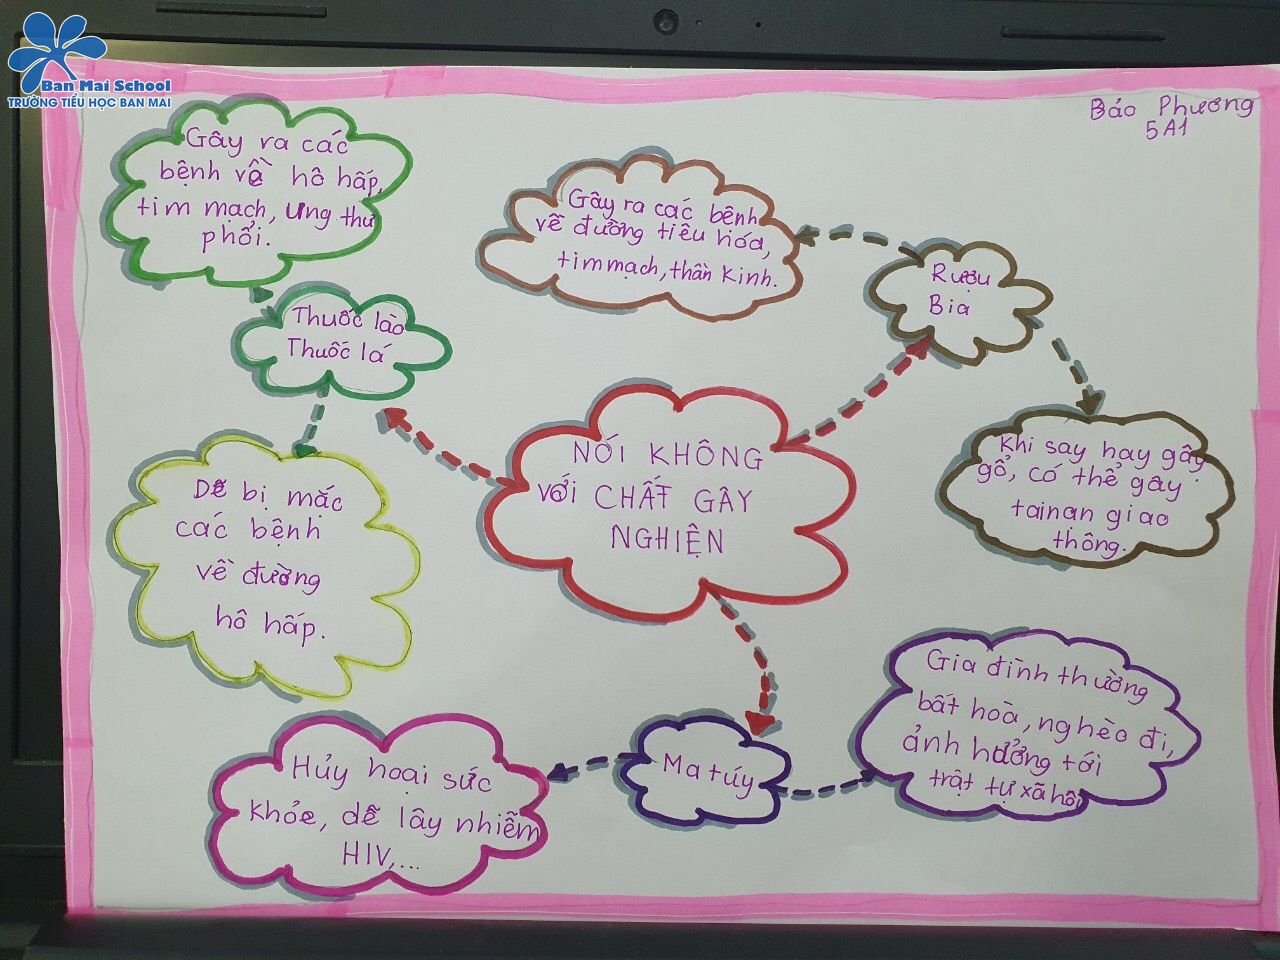 Ban Mai School
TRƯỜNG TIỂU HỌC BAN MAI
Bảo Phương
5A1
Gây ra các
bệnh về hô hấp,
tim mạch, ưng thư
phổi.
Gây ra các bệnh
về đường tiêu hóa,
tim mạch, thần kinh.
Rượu
Bia
Thuốc lào
Thuốc lá
NÓI KHÔNG
với CHẤT GÂY
NGHIỆN
Khi say hay gây
gổ, có thể gây
tai nạn giao
thông.
Dễ bị mắc
các bệnh
về đường
hô hấp.
Gia đình thường
bất hoà, nghèo đi,
ảnh hưởng tới
trật tự xã hội
Ma túy
Hủy hoại sức
khỏe, dễ lây nhiễm
HIV,...